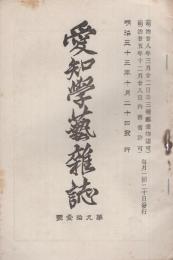 明治廿八年三月廿二日第三種郵便物認可
明治廿五年十二月廿八日内務省許可
毎月一回二十日發行
明治三十三年十月二十四發行
愛知學藝雜誌
第九拾壹號